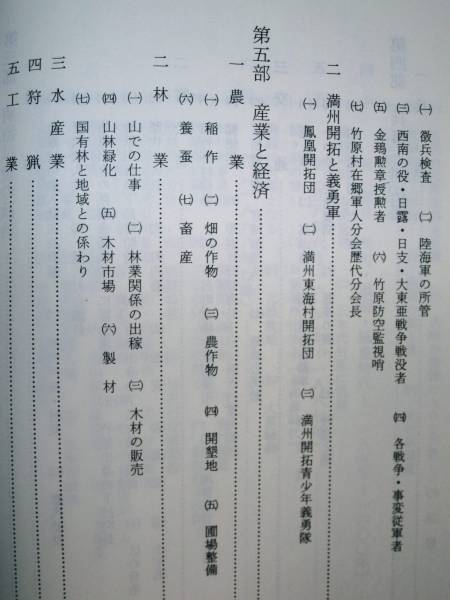 ㈠ 徴兵検査 ㈡ 陸海軍の所管
㈢ 西南の役・日露・日支・大東亜戦争戦没者 ㈣ 各戦争・事変従軍者
㈤ 金鵄勲章授勲者 ㈥ 竹原防空監視哨
㈦ 竹原村在郷軍人分会歴代分会長
二 満州開拓と義勇軍
㈠ 鳳凰開拓団 ㈡ 満州東海村開拓団 ㈢ 満州開拓青少年義勇隊
第五部 産業と経済
一 農業
㈠ 稲作 ㈡ 畑の作物 ㈢ 農作物 ㈣ 開墾地 ㈤ 圃場整備
㈥ 養蚕 ㈦ 畜産
二 林業
㈠ 山での仕事 ㈡ 林業関係の出稼 ㈢ 木材の販売
㈣ 山林緑化 ㈤ 木材市場 ㈥ 製材
㈦ 国有林と地域との係わり
三 水産業
四 狩猟
五 工業